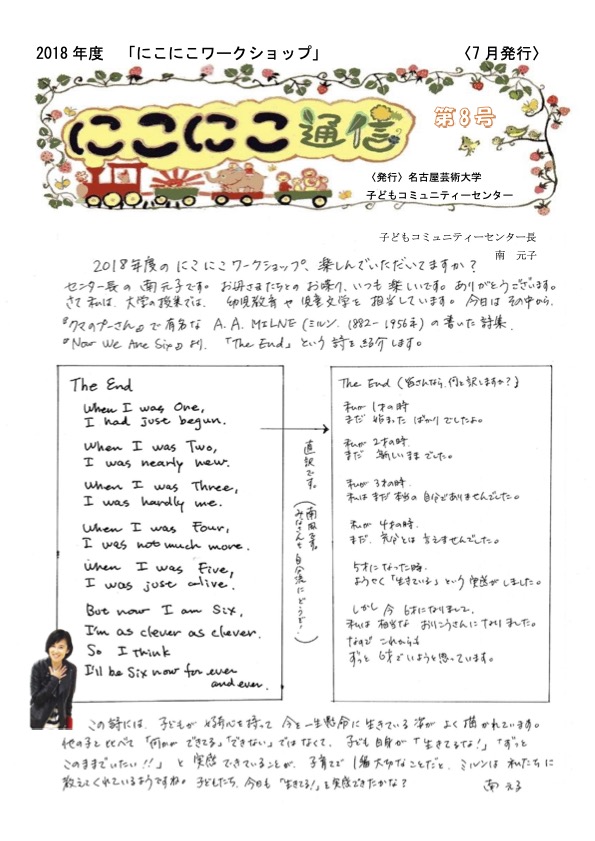 2018年度　「にこにこワークショップ」　〈7月発行〉
にこにこ通信
第8号
〈発行〉名古屋芸術大学
子どもコミュニティーセンター
子どもコミュニティーセンター長
南　元子
2018年度の にこにこワークショップ、楽しんでいただいてますか？
センター長の 南元子です。お母さまたちとの お喋り、いつも楽しいです。ありがとうございます。
さて私は、大学の授業では、幼児教育や児童文学を担当しています。今日は その中から、
『クマのプーさん』で有名な A. A. MILNE (ミルン. 1882-1956年) の書いた詩集、
『Now We Are Six』より、「The End」という詩を紹介します。
The End
When I was One,
I had just begun.
When I was Two,
I was nearly new.
When I was Three,
I was hardly me.
When I was Four,
I was not much more.
When I was Five,
I was just alive.
But now I am Six,
I'm as clever as clever.
So I think
I'll be Six now for ever
and ever.
直訳です。
(南風で。みなさんも 自分流に どうぞ！)
The End (皆さんなら、何と訳しますか？)
私が 1才の時
まだ 始まった ばかりでしたよ。
私が 2才の時、
まだ 新しいままでした。
私が 3才の時、
私はまだ本当の自分でありませんでした。
私が 4才の時、
まだ、充分とは 言えませんでした。
5才になった時、
ようやく「生きている」という実感がしました。
しかし 今 6才になりまして、
私は相当な おりこうさんに なりました。
なので これからも
ずっと 6才でいようと思っています。
この詩には、子どもが 好奇心を持って 今を一生懸命に 生きている姿が よく描かれています。
他の子と比べて「何かが できてる」「できない」ではなくて、子ども自身が「生きてるな！」「ずっと
このままでいたい！！」と 実感できていることが、子育てで 1番大切なことだと、ミルンは 私たちに
教えてくれているようですね。子どもたち、今日も「生きてる！」を実感できたかな？
南 元子